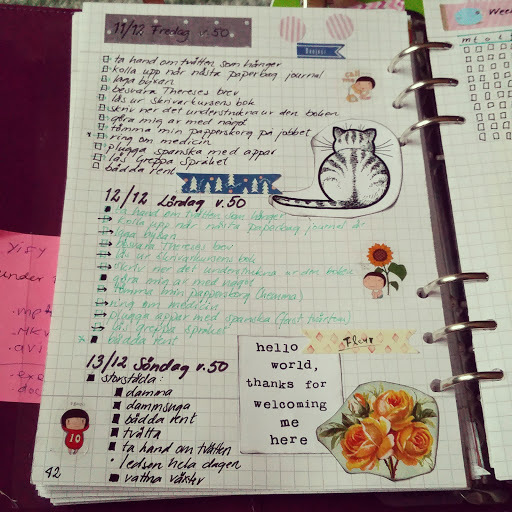 11/12 Fredag v.50
Bonjour
Week
m t o t f
ta hand om tvätten som hänger
kolla upp när nästa paperbag journal
laga byxan
besvara Thereses brev
läs ur skrivarkursens bok
skriv ner det understrukna ur den boken
göra mig av med något
tömma min papperskorg på jobbet
ring om medicin
plugga spanska med appar
läs Greppa språket
bädda rent
12/12 Lördag v.50
ta hand om tvätten som hänger
kolla upp när nästa paperbag journal är
laga byxan
besvara Thereses brev
läs ur skrivarkursens bok
skriv ner det understrukna ur den boken
göra mig av med något
tömma min papperskorg (hemma)
ring om medicin
plugga appar med spanska (fast tvärtom)
läs greppa språket
bädda rent
13/12 Söndag v.50
storstäda:
damma
dammsuga
bädda rent
tvätta
ta hand om tvätten
ledsen hela dagen
vattna växter
Fleur
hello
world,
thanks for
welcoming
me
here
10
42
under
.avi
.doc